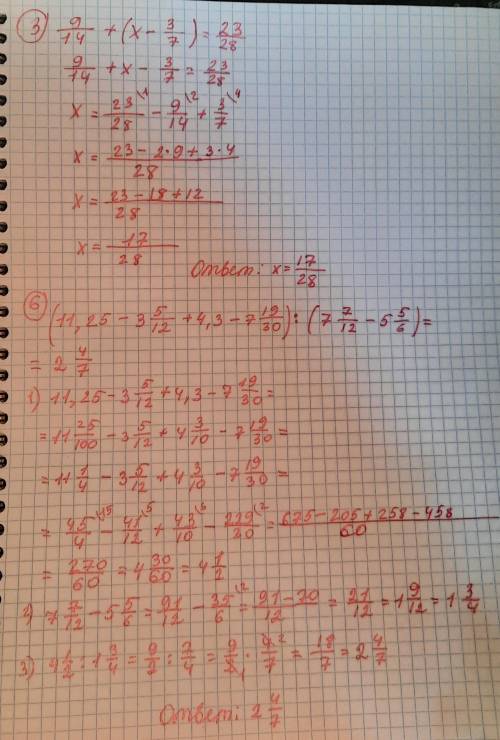 3) 9/14 + (x - 3/7) = 23/28
9/14 + x - 3/7 = 23/28
x = 23/28 \1 - 9/14 \2 + 3/7 \4
x = (23 - 2·9 + 3·4)/28
x = (23 - 18 + 12)/28
x = 17/28
Ответ: x = 17/28
6) (11,25 - 3 5/12 + 4,3 - 7 19/30) : (7 7/12 - 5 5/6) =
= 2 4/7
1) 11,25 - 3 5/12 + 4,3 - 7 19/30 =
= 11 25/100 - 3 5/12 + 4 3/10 - 7 19/30 =
= 11 1/4 - 3 5/12 + 4 3/10 - 7 19/30 =
= 45/4 \15 - 41/12 \5 + 43/10 \6 - 229/30 \2 = (675 - 205 + 258 - 458)/60
= 270/60 = 4 30/60 = 4 1/2
2) 7 7/12 - 5 5/6 = 91/12 - 35/6 \2 = (91 - 70)/12 = 21/12 = 1 9/12 = 1 3/4
3) 4 1/2 : 1 3/4 = 9/2 : 7/4 = 9/2 1 · 4 2/7 = 18/7 = 2 4/7
Ответ: 2 4/7